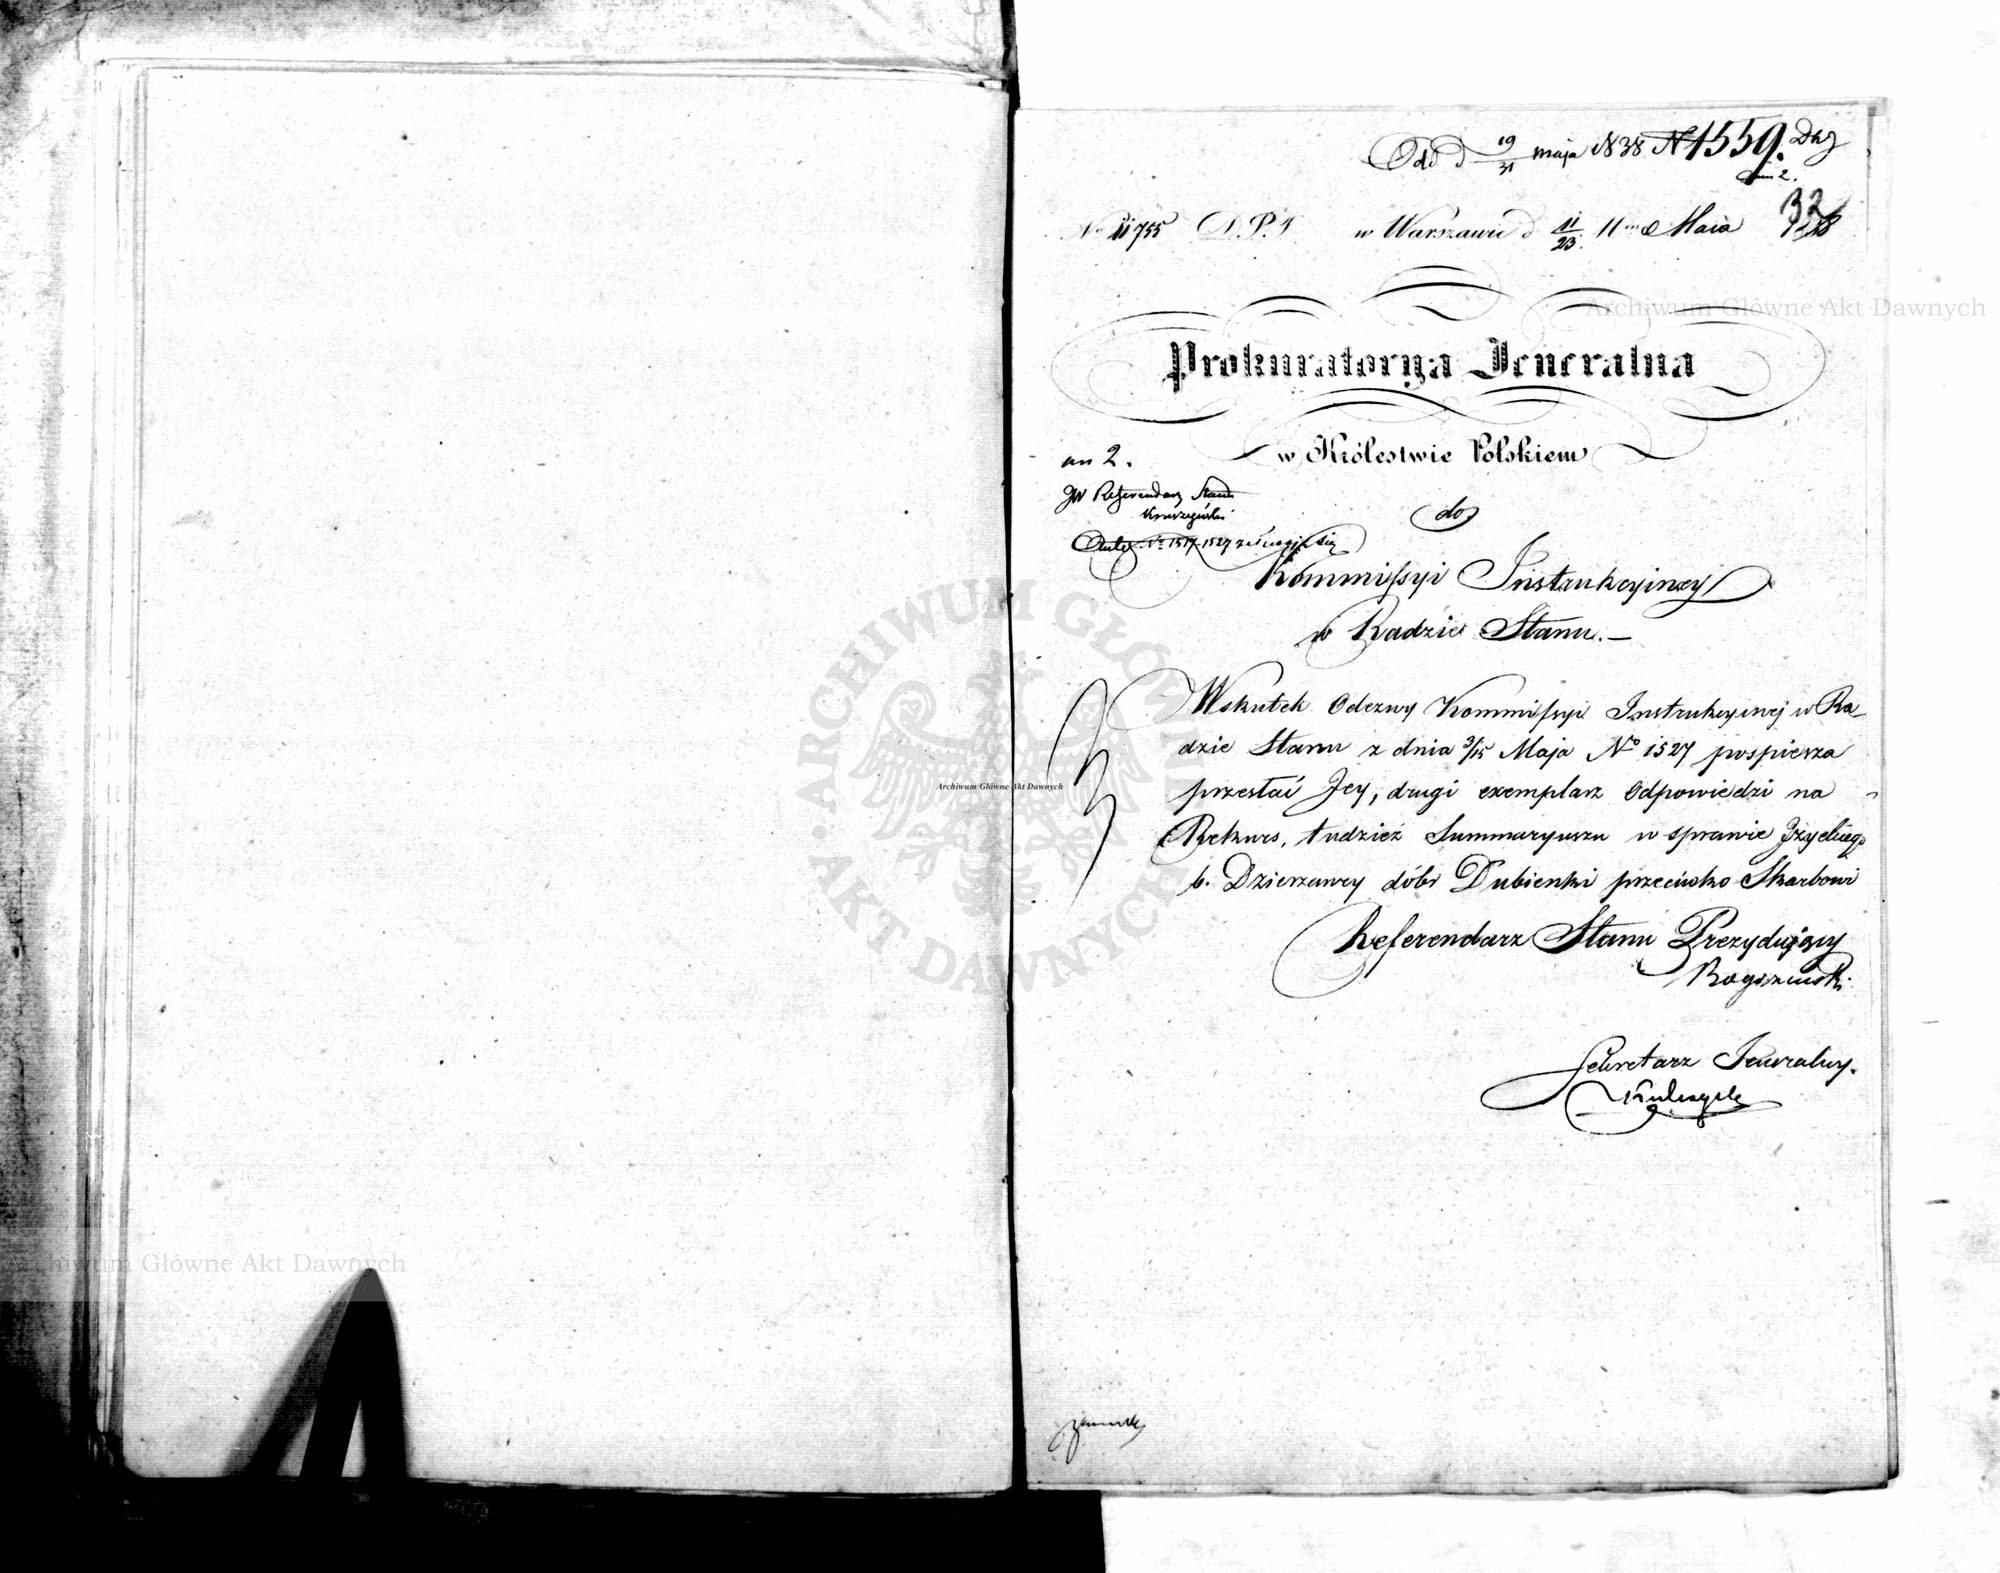 Odd d 19/31 maja 1838 N 1559. Dkg
ann 2.
32
No 11755 D. P. 4 w Warszawie d 11/23. 11 Maia 1838
Archiwum Główne Akt Dawnych
Prokuratorya Jeneralna
w Królestwie Polskiem
an 2.
JW Referendarz Stanu
do
Kommissyi Instrukcyiney
w Radzie Stanu.—
Wskutek Odezwy Kommissyi Instrukcyinej w Ra-
dzie Stanu z dnia 3/15 Maja No 1527 pospiesza
przesłać Jey, drugi exemplarz Odpowiedzi na
Rekurs, tudzież Summaryusza w sprawie Iżyckiego
b. Dzierzawcy dóbr Dubienki przeciwko Skarbowi
Referendarz Stanu Prezydujący
Sekretarz Jeneralny.
ARCHIWUM GŁÓWNE AKT DAWNYCH
Archiwum Główne Akt Dawnych
Archiwum Główne Akt Dawnych